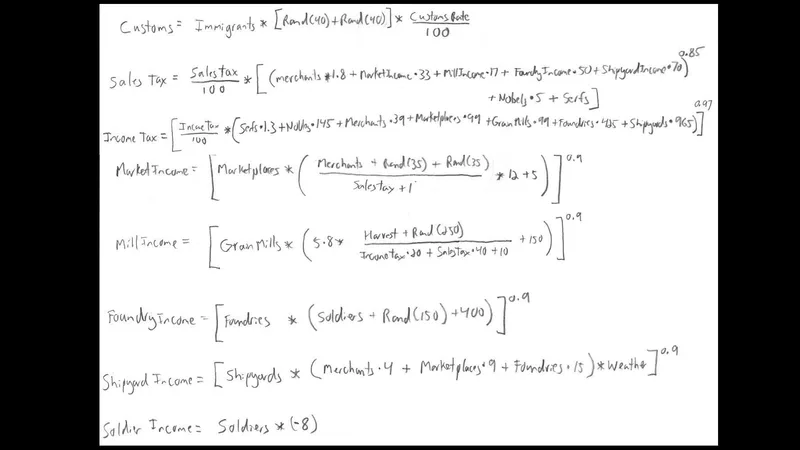 Customs = Immigrants * [Rand(40) + Rand(40)] * CustomsRate / 100
Sales Tax = SalesTax / 100 * [(merchants * 1.8 + MarketIncome · 33 + MillIncome · 17 + FoundryIncome · 50 + ShipyardIncome · 70)^0.85
+ Nobels · 5 + Serfs]
Income Tax = [IncomeTax / 100 * (Serfs · 1.3 + Nobles · 145 + Merchants · 39 + Marketplaces · 99 + GranMills · 99 + Foundries · 425 + Shipyards · 965)]^0.97
MarketIncome = [Marketplaces * (Merchants + Rand(35) + Rand(35) / SalesTax + 1 * 12 + 5)]^0.9
Mill Income = [GranMills * (5.8 * Harvest + Rand(250) / IncomeTax · 20 + SalesTax · 40 + 10 + 150)]^0.9
Foundry Income = [Foundries * (Soldiers + Rand(150) + 400)]^0.9
Shipyard Income = [Shipyards * (Merchants · 4 + Marketplaces · 9 + Foundries · 15) * Weather]^0.9
Soldier Income = Soldiers * (-8)